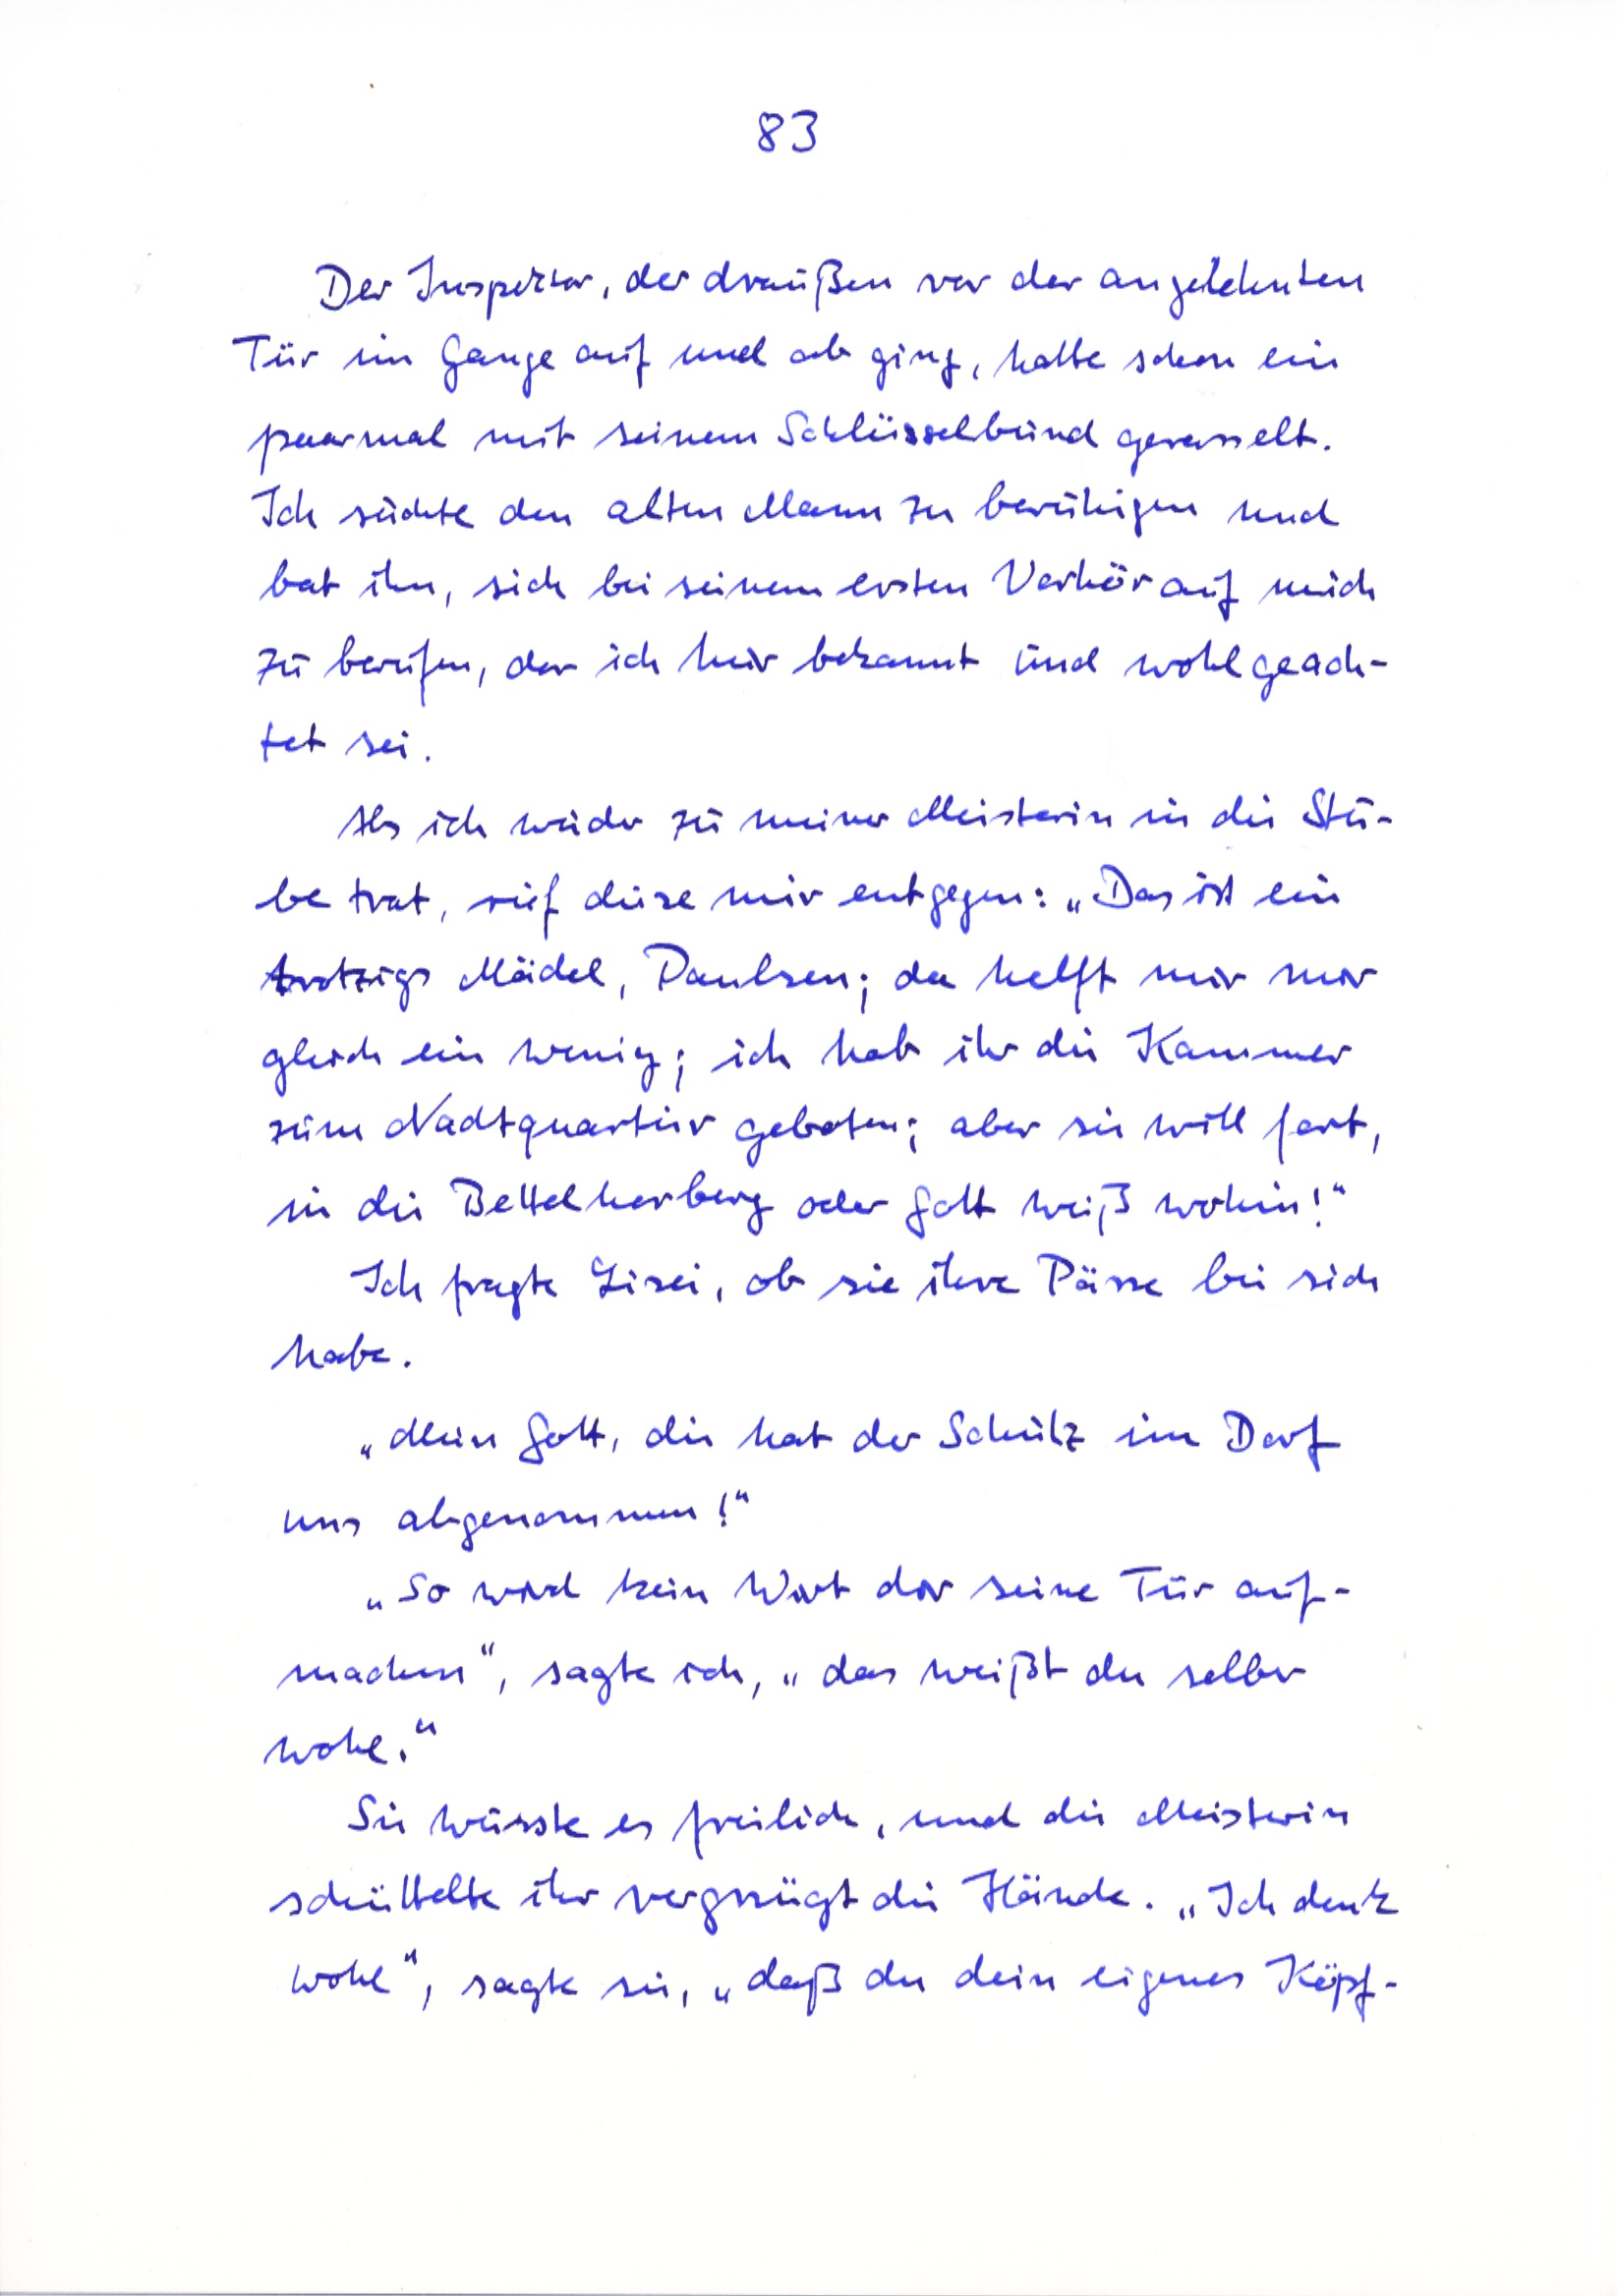 83
Der Inspektor, der draußen vor der angelehnten
Tür im Gange auf und ab ging, hatte schon ein
paarmal mit seinem Schlüsselbund gerasselt.
Ich suchte den alten Mann zu beruhigen und
bat ihn, sich bei seinem ersten Verhör auf mich
zu berufen, der ich hier bekannt und wohlgeach-
tet sei.
Als ich wieder zu meiner Meisterin in die Stu-
be trat, rief diese mir entgegen: „Das ist ein
trotzigs Mädel, Paulsen; da helft mir nur
gleich ein wenig; ich hab ihr die Kammer
zum Nachtquartier geboten; aber sie will fort,
in die Bettelherberg oder Gott weiß wohin!“
Ich fragte Lisei, ob sie ihre Pässe bei sich
habe.
„Mein Gott, die hat der Schulz im Dorf
uns abgenommen!“
„So wird kein Wirt dir seine Tür auf-
machen“, sagte ich, „das weißt du selber
wohl.“
Sie wusste es freilich, und die Meisterin
schüttelte ihr vergnügt die Hände. „Ich denk
wohl“, sagte sie, „daß du dein eigenes Köpf-